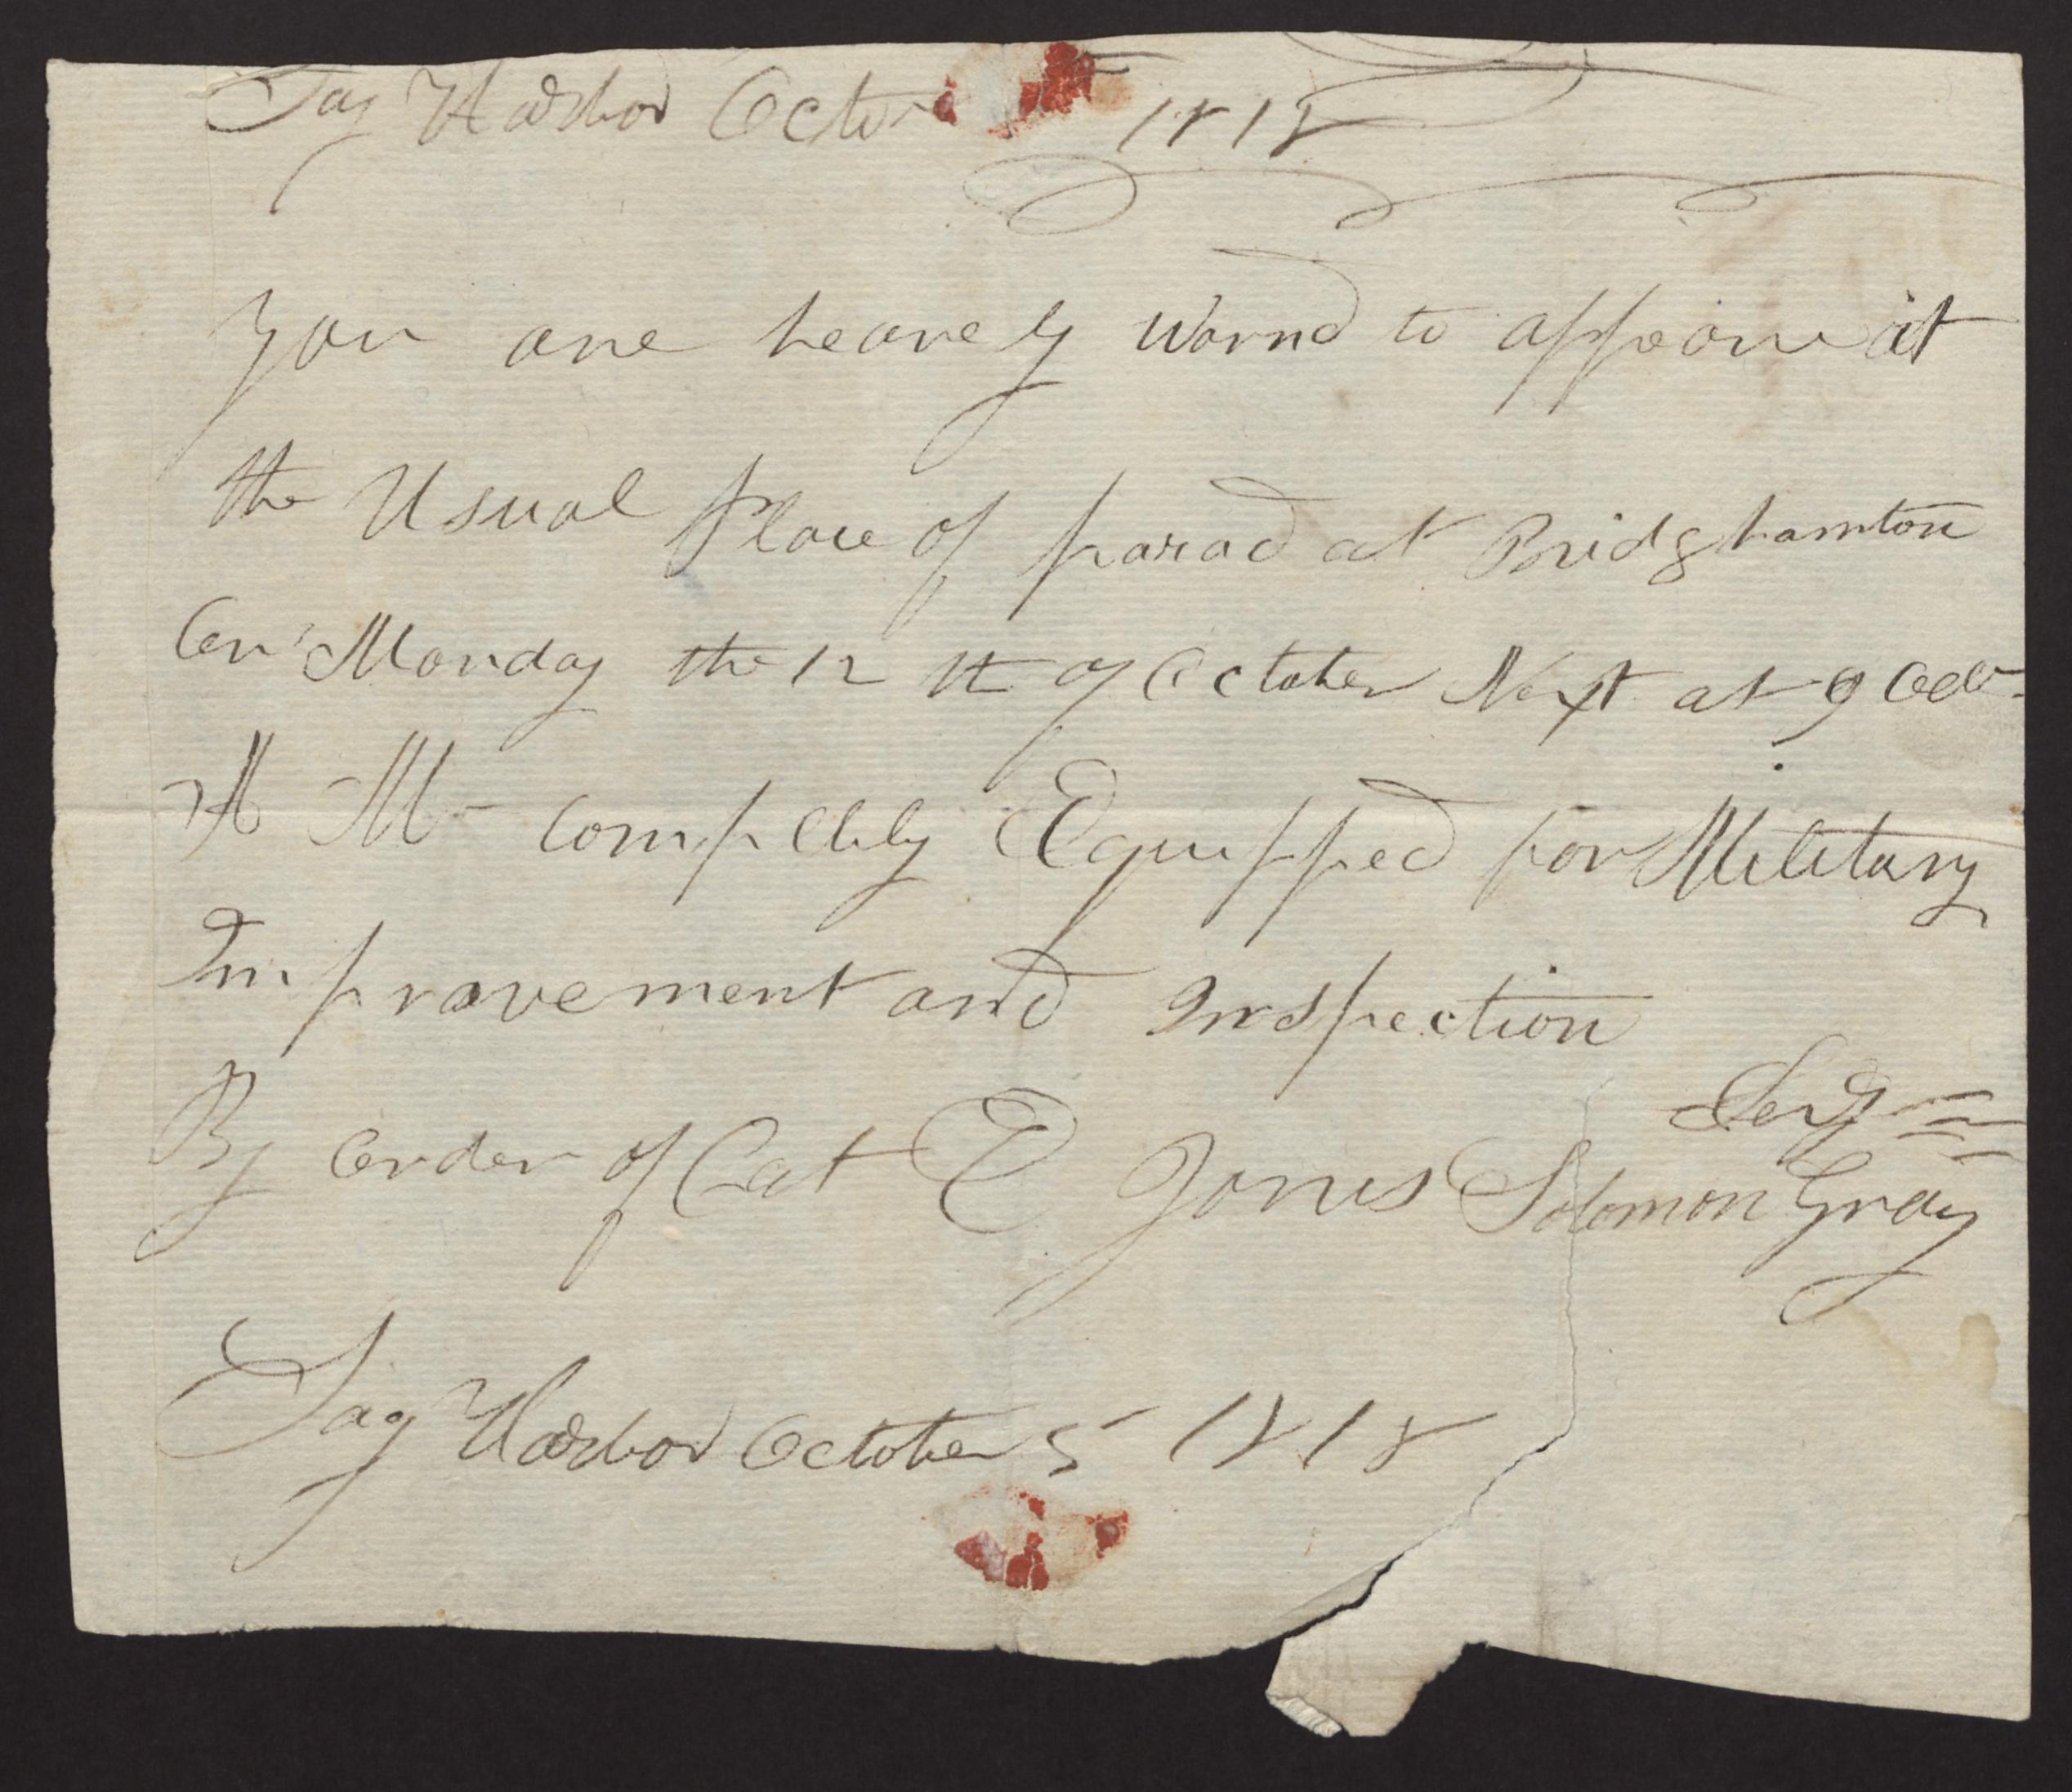 Sag Harbor Octo 1818
You are hearely warnd to appeare at
the Usual place of parad at Bridghamton
on Monday the 12 th of October Next at 9 Oclo
A M completly Equipped for Military
Improvement and Inspection
Serg
By order of Cat E Jones Solomon Gray
Sag Harbor October 5 1818